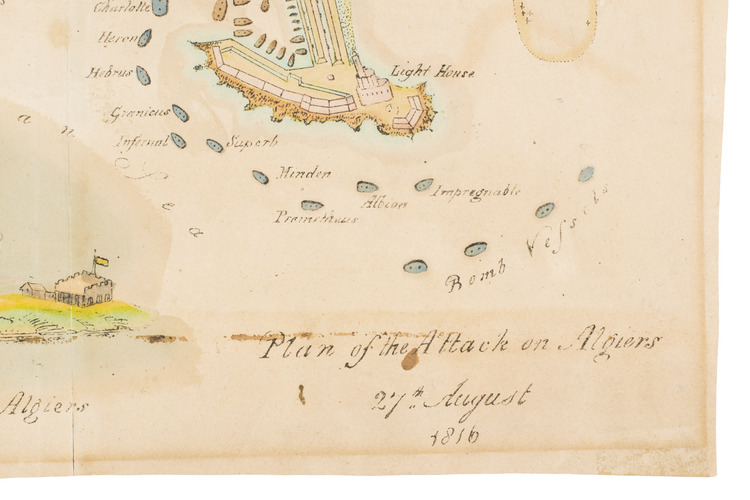 Charlotte
Heron
Hebrus
Light House
Granicus
Infernal
Superb
a n
Sea
Minden
Impregnable
Albion
Prometheus
Bomb Vessels
Plan of the Attack on Algiers
Algiers
27th August
1816